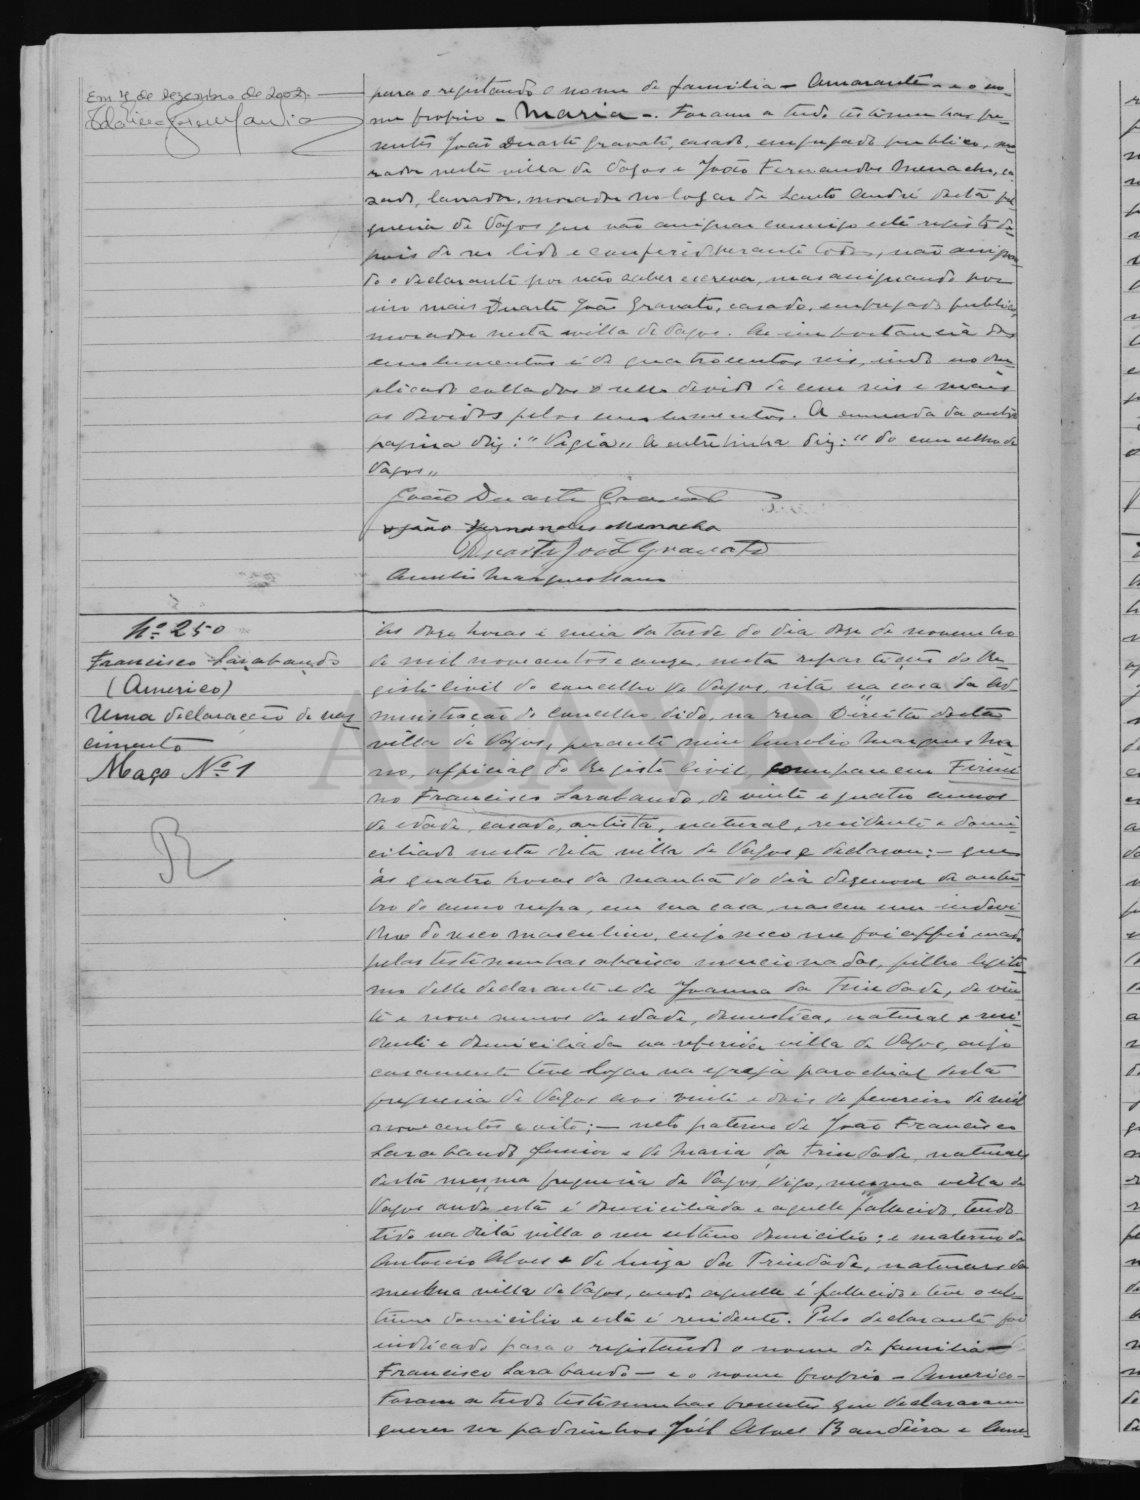 Em 4 de Dezembro de 2002.
para o registando o nome de familia - Amarante - e o no-
me proprio - Maria -. Foram a tudo testimunhas pre-
sentes João Duarte Gravato, casado, empregado publico, mo-
rador nesta villa de Vagos e João Fernandes Menacho, ca-
sado, lavrador, morador no logar de Santo André desta fre-
guesia de Vagos que vão assignar commigo este registo de-
pois de ser lido e conferido perante todos, não assignan-
do o declarante por não saber escrever, mas assignando por
isso mais Duarte João Gravato, casado, empregado publico,
morador nesta villa de Vagos. A importancia dos
emolumentos é de quatrocentos reis, indo no du-
plicado collados o sello devido de cem reis e mais
os devidos pelos emolumentos. A emenda da outra
pagina diz: "Vigia" A entrelinha diz: "do concelho de
Vagos"
João Duarte Gravato
João Fernandes Menacho
Duarte João Gravato
Aurelio Marques Mano
Nº 250
Francisco Sarabando
(Americo)
Uma declaração de nas-
cimento
Maço Nº 1
R
Ás doze horas e meia da tarde do dia doze de novembro
de mil novecentos e onze, nesta repartição do Re-
gisto civil do concelho de Vagos, sita na casa da Ad-
ministração do Concelho, dido, na rua Direita desta
villa de Vagos, perante mim Aurelio Marques Ma-
no, official do Registo Civil, compareceu Firmi-
no Francisco Sarabando, de vinte e quatro annos
de edade, casado, artista, natural, residente e domi-
ciliado nesta dita villa de Vagos e declarou: - que
ás quatro horas da manhã do dia dezenove de outu-
bro do anno supra, em sua casa, nasceu um individuo
do sexo masculino, cujo sexo me foi affirmado
pelas testimunhas abaixo mencionadas, filho legiti-
mo delle declarante e de Joanna da Trindade, de vin-
te e nove annos de edade, domestica, natural, resi-
dente e domiciliada na referida villa de Vagos, cujo
casamento teve logar na egreja parochial desta
freguesia de Vagos aos vinte e dois de fevereiro de mil
novecentos e oito; - neto paterno de João Francisco
Sarabando Junior e de Maria da Trindade, naturaes
desta mesma freguesia de Vagos, digo, mesma villa de
Vagos onde esta é domiciliada e aquelle fallecido, tendo
tido na dita villa o seu ultimo domicilio; e materno de
Antonio Alves e de Luiza da Trindade, naturaes da
mesma villa de Vagos, onde aquelle é fallecido e teve o ul-
timo domicilio e esta é residente. Pelo declarante foi
indicado para o registando o nome de familia -
Francisco Sarabando - e o nome proprio - Americo -
Foram a tudo testimunhas presentes que declararam
querer ser padrinhos José Alves Bandeira e